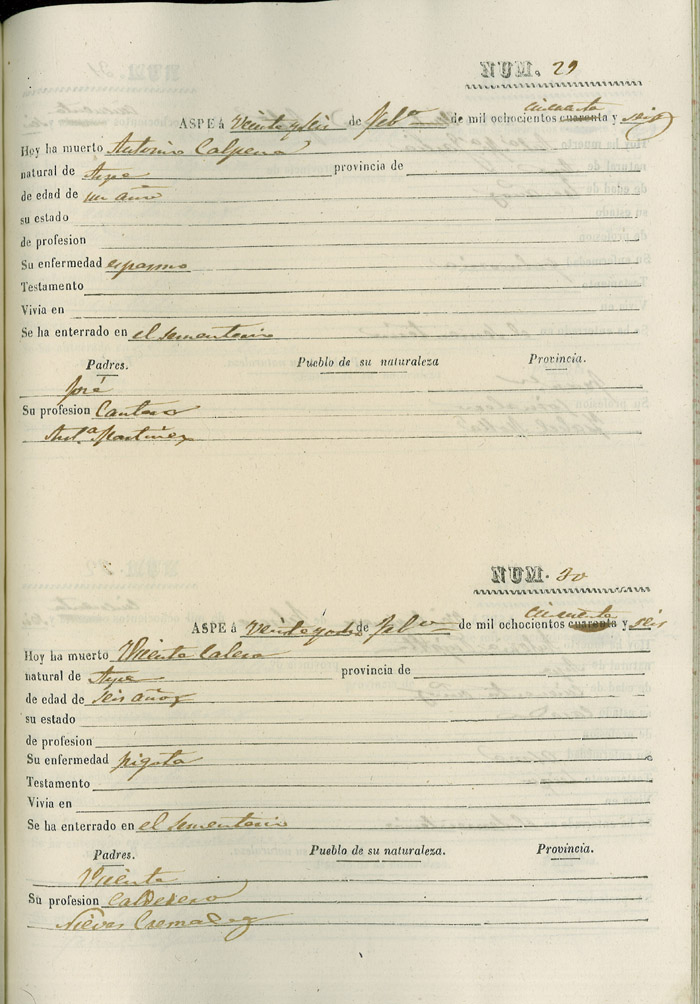 NUM. 29
cincuenta
ASPE á Veinte y seis de Feb.ro de mil ochocientos cuarenta y seis
Hoy ha muerto Antonio Calpena
natural de Aspe provincia de
de edad de un año
su estado
de profesion
Su enfermedad espasmo
Testamento
Vivia en
Se ha enterrado en el sementerio
Padres. Pueblo de su naturaleza Provincia.
José
Su profesion Cantero
Ant.a Martinez
NUM. 30
cincuenta
ASPE á de Feb.ro de mil ochocientos cuarenta y seis
Hoy ha muerto Vicenta Calero
natural de Aspe provincia de
de edad de seis años
su estado
de profesion
Su enfermedad pigota
Testamento
Vivia en
Se ha enterrado en el sementerio
Padres. Pueblo de su naturaleza. Provincia.
Vicente
Su profesion Calderero
Nieves Cremades